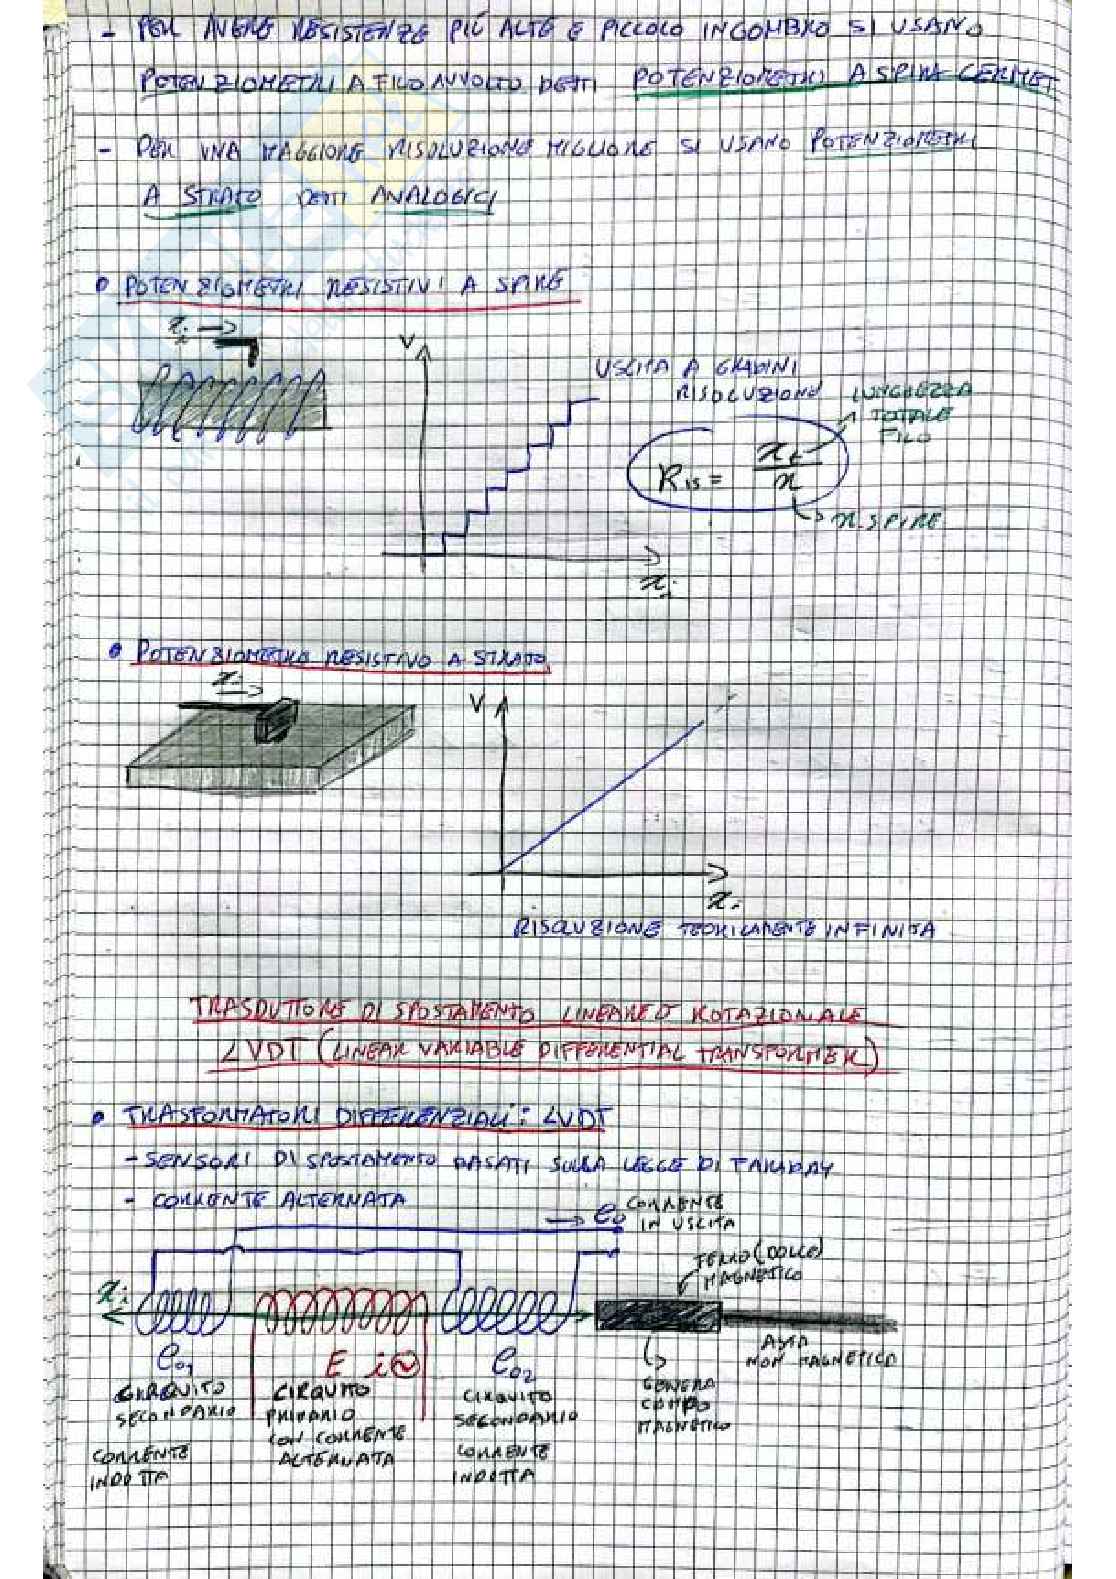 - PER AVERE RESISTENZE PIÙ ALTE E PICCOLO INGOMBRO SI USANO
POTENZIOMETRI A FILO AVVOLTO DETTI POTENZIOMETRI A SPIRA CERMET
- PER UNA MAGGIORE RISOLUZIONE MIGLIORE SI USANO POTENZIOMETRI
A STRATO DETTI ANALOGICI
• POTENZIOMETRI RESISTIVI A SPIRE
xi →
V
USCITA A GRADINI
RISOLUZIONE
LUNGHEZZA
TOTALE
FILO
Ris = xt / n
n SPIRE
xi
• POTENZIOMETRO RESISTIVO A STRATO
xi
V
xi
RISOLUZIONE TEORICAMENTE INFINITA
TRASDUTTORE DI SPOSTAMENTO LINEARE O ROTAZIONALE
LVDT (LINEAR VARIABLE DIFFERENTIAL TRANSFORMER)
• TRASFORMATORI DIFFERENZIALI: LVDT
- SENSORI DI SPOSTAMENTO BASATI SULLA LEGGE DI FARADAY
- CORRENTE ALTERNATA
→ eo CORRENTE
IN USCITA
FERRO (DOLCE)
MAGNETICO
xi
ASTA
NON MAGNETICO
eo1
CIRQUITO
SECONDARIO
CORRENTE
INDOTTA
E i~
CIRQUITO
PRIMARIO
CON CORRENTE
ALTERNATA
eo2
CIRQUITO
SECONDARIO
CORRENTE
INDOTTA
GENERA
CAMPO
MAGNETICO